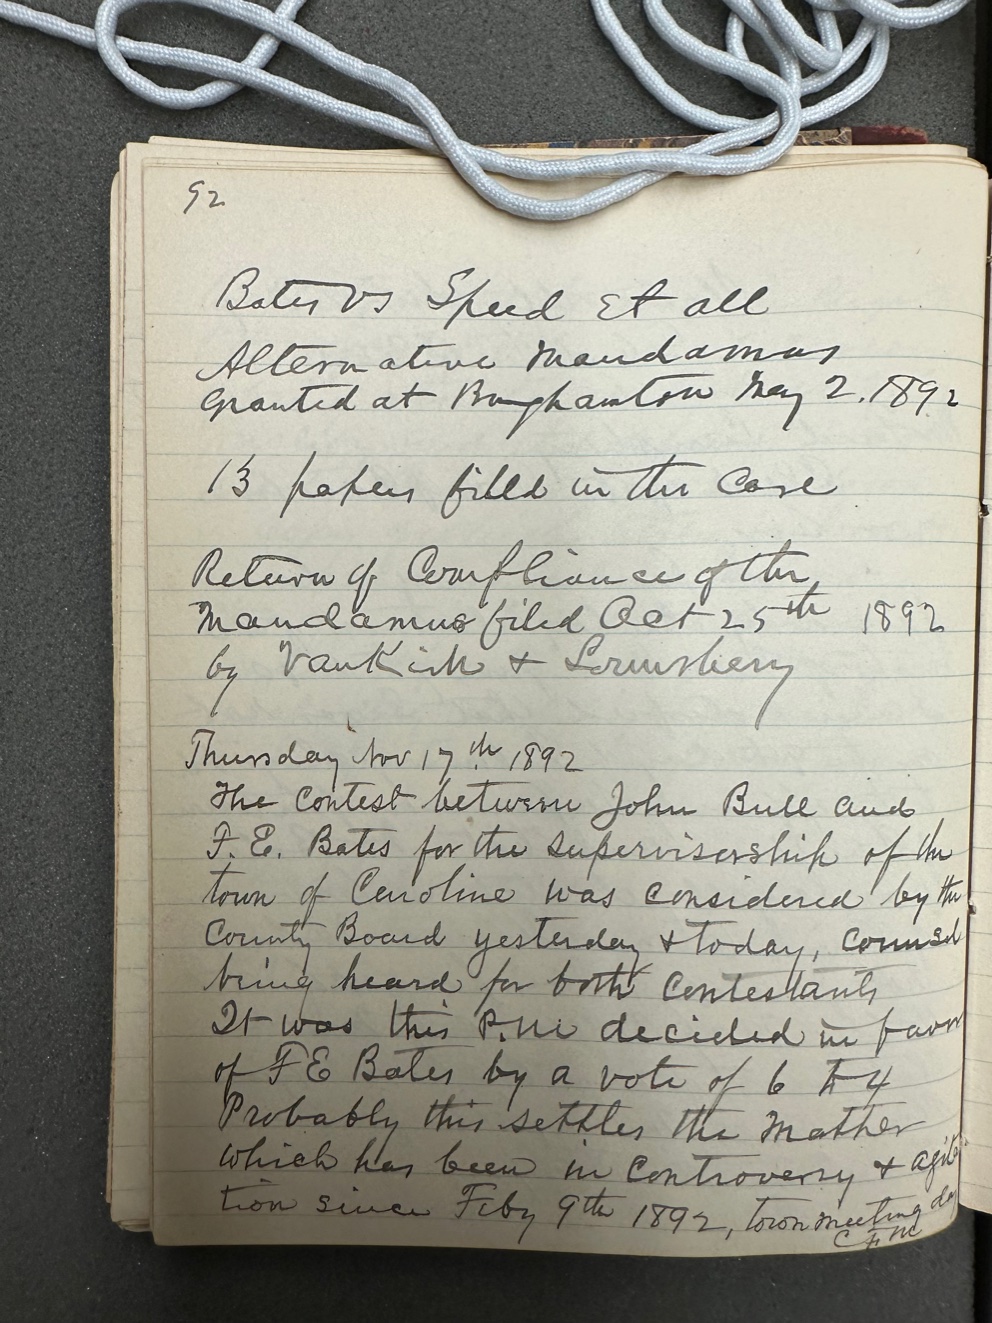 92
Bates vs Speed et all
Alternative Mandamus
granted at Binghamton May 2, 1892
13 papers filed in the Case
Return of Compliance of the
Mandamus filed Oct 25th 1892
by VanKirk & Lounsbery
Thursday Nov 17th 1892
The contest between John Bull and
F. E. Bates for the supervisorship of the
town of Caroline was considered by the
County Board yesterday & today, counsel
being heard for both Contestants
It was this P.M. decided in favor
of F E Bates by a vote of 6 to 4
Probably this settles the Matter
which has been in controversy & agita
tion since Feby 9th 1892, town meeting day